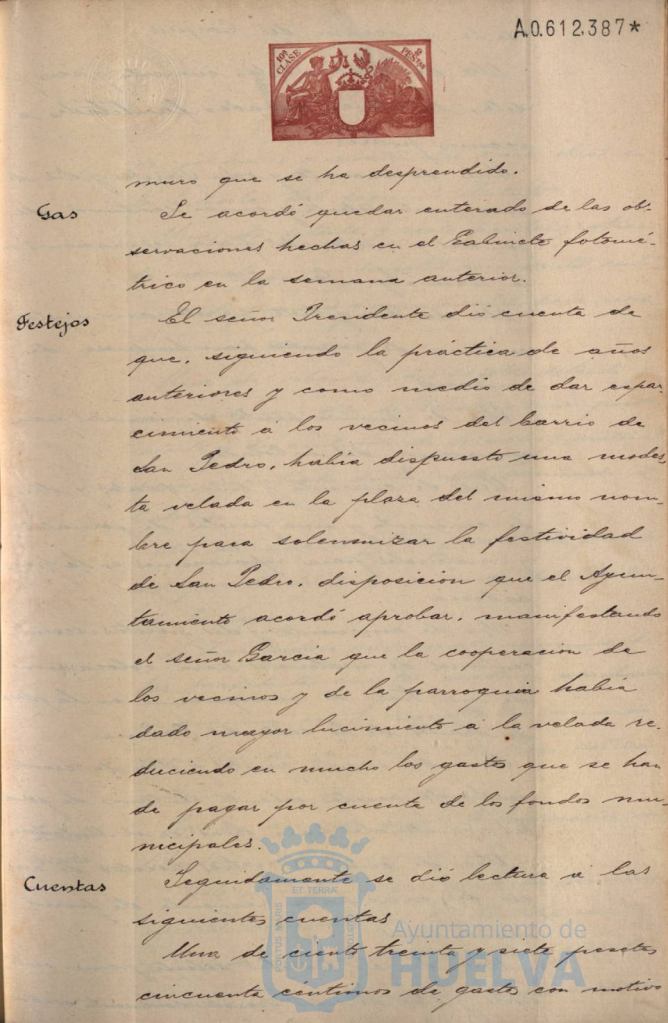 A.0.612.387*
10ª CLASE
2 PESETAS
muro que se ha desprendido.
Gas
Se acordó quedar enterado de las ob-
servaciones hechas en el Gabinete fotomé-
trico en la semana anterior.
Festejos
El señor Presidente dió cuenta de
que, siguiendo la práctica de años
anteriores y como medio de dar espar-
cimiento á los vecinos del barrio de
San Pedro, había dispuesto una modes-
ta velada en la plaza del mismo nom-
bre para solemnizar la festividad
de San Pedro, disposicion que el Ayun-
tamiento acordó aprobar, manifestando
el señor Garcia que la cooperacion de
los vecinos y de la parroquia había
dado mayor lucimiento á la velada re-
duciendo en mucho los gastos que se han
de pagar por cuenta de los fondos mu-
nicipales.
Cuentas
Seguidamente se dió lectura á las
siguientes cuentas
Una de ciento treinta y siete pesetas
cincuenta céntimos de gastos con motivo
ET TERRA
PORTUS MARIS
Ayuntamiento de
HUELVA